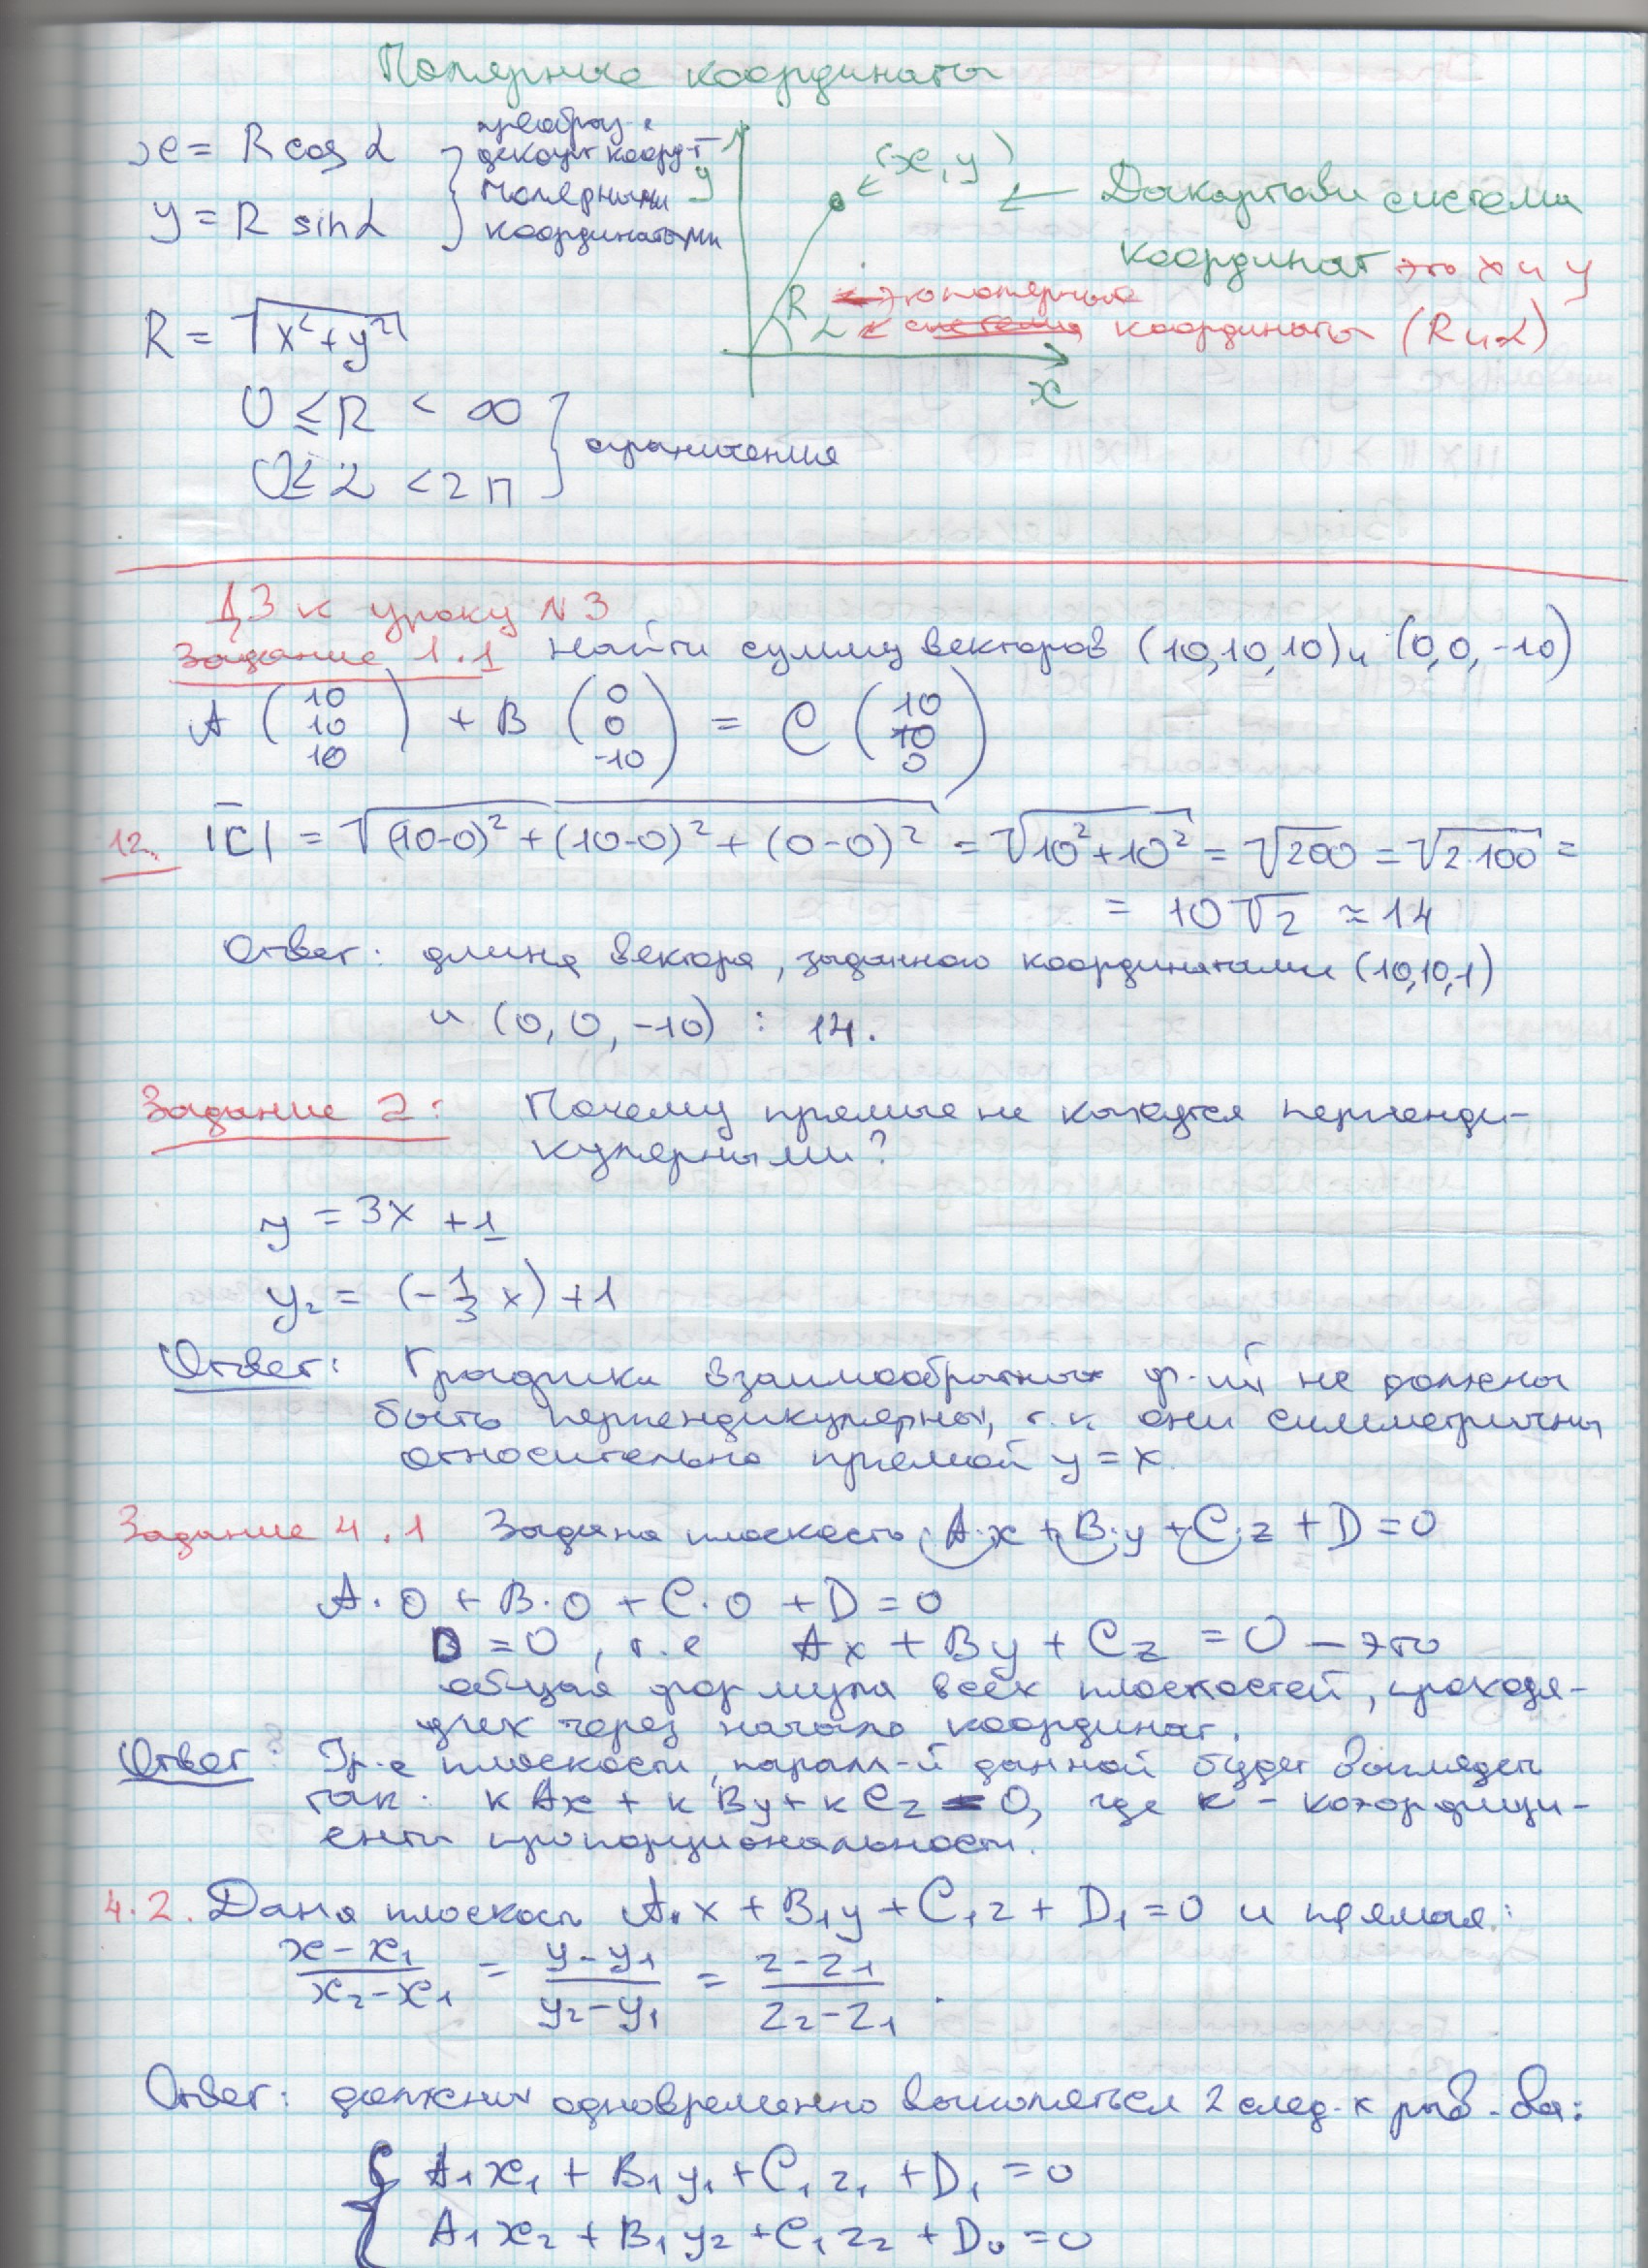 Полярные координаты
x = R cos α
y = R sin α
преобраз-е
декарт коорд-т
полярными
координатами
y
(x, y)
← Декартова система
координат это x и y
R ← это полярные
α ← система координаты (R и α)
x
R = √x²+y²
0 ≤ R < ∞
0 ≤ α < 2π
ограничения
ДЗ к уроку N 3
Задание 1.1 Найти сумму векторов (10,10,10) и (0,0,-10)
A (10 10 10) + B (0 0 -10) = C (10 10 0)
12. |C| = √(10-0)² + (10-0)² + (0-0)² = √10²+10² = √200 = √2·100 =
= 10√2 ≈ 14
Ответ: длина вектора, заданного координатами (10,10,1)
и (0, 0, -10) : 14.
Задание 2: Почему прямые не кажутся перпенди-
кулярными?
y = 3x + 1
y₂ = (-1/3 x) + 1
Ответ: Графики взаимообратных ф-ий не должны
быть перпендикулярны, т.к они симметричны
относительно прямой y = x.
Задание 4.1 Задана плоскость A·x + B·y + C·z + D = 0
A·0 + B·0 + C·0 + D = 0
D = 0, т.е Ax + By + Cz = 0 – это
общая формула всех плоскостей, проходя-
щих через начало координат.
Ответ: Ур-е плоскости, паралл-й данной будет выглядеть
так: кAx + кBy + кCz = 0, где к – коэффици-
енты пропорциональности.
4.2. Дана плоскость A₁x + B₁y + C₁z + D₁ = 0 и прямая:
x-x₁/x₂-x₁ = y-y₁/y₂-y₁ = z-z₁/z₂-z₁.
Ответ: должны одновременно выполняться 2 след-х рав-ва:
{ A₁x₁ + B₁y₁ + C₁z₁ + D₁ = 0
A₁x₂ + B₁y₂ + C₁z₂ + D₀ = 0